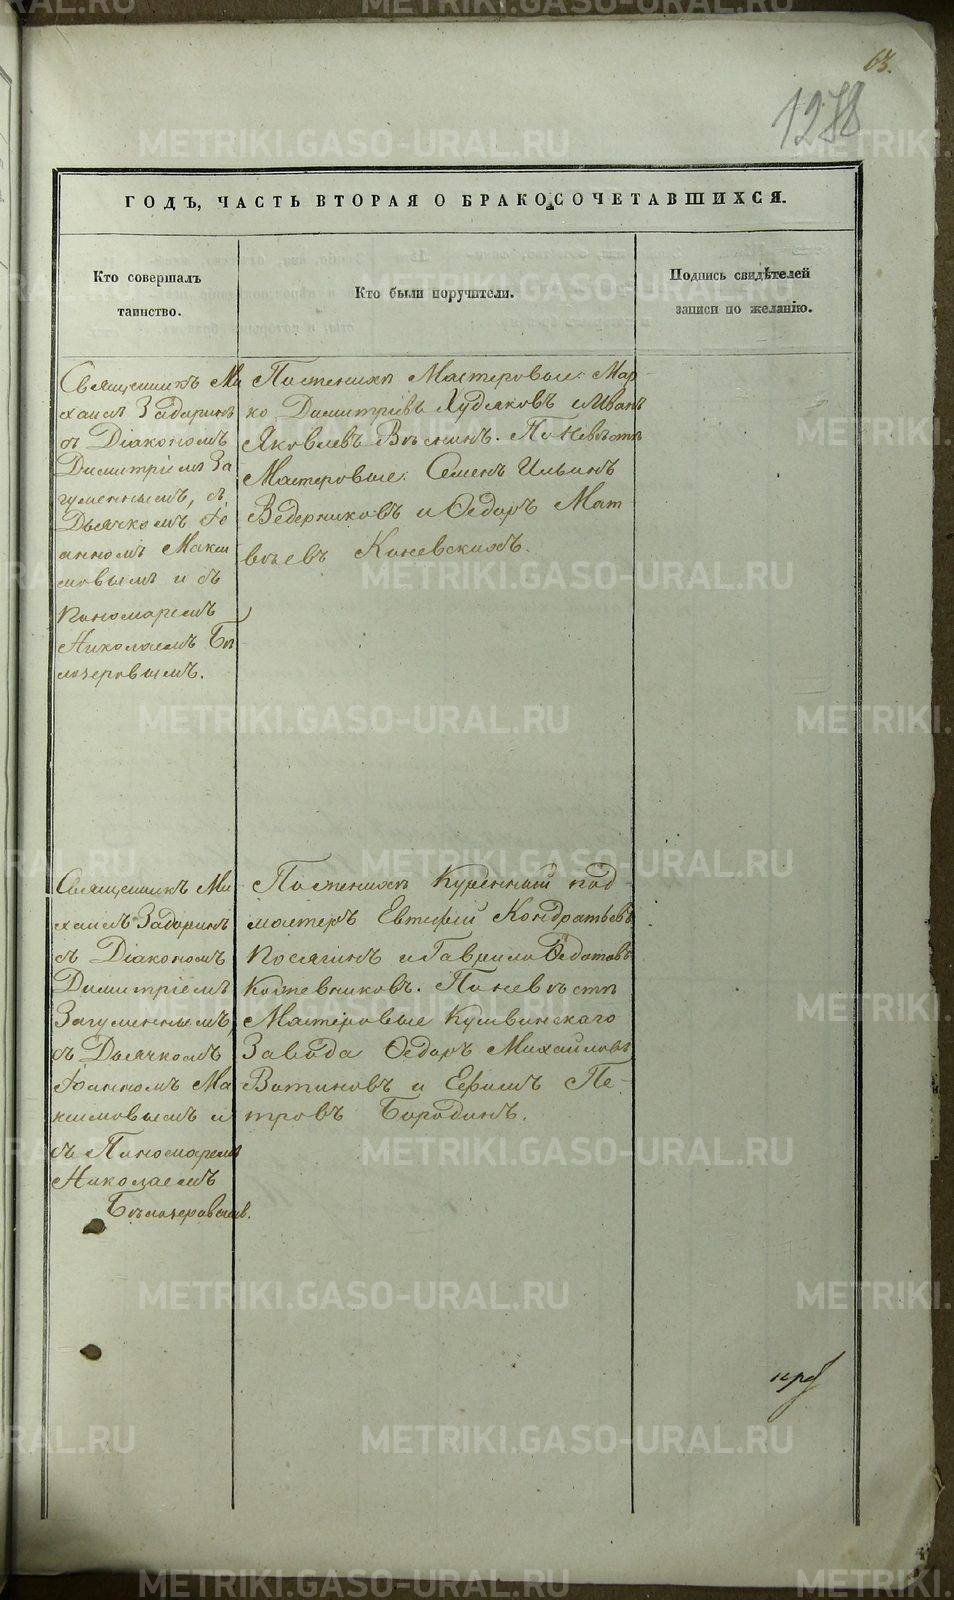 63.
1278
ГОДЪ, ЧАСТЬ ВТОРАЯ О БРАКОСОЧЕТАВШИХСЯ.
Кто совершалъ
таинство.
Кто были поручители.
Подпись свидѣтелей
записи по желанію.
Священникъ Ми
хаилъ Задоринъ
съ Діакономъ
Димитріемъ За
гуменнымъ, съ
Дьячкомъ Іо
анномъ Макси
мовымъ и съ
Пономаремъ
Николаемъ Бѣ
лозеровымъ.
По женихѣ Мастеровые: Мар
ко Димитріевъ Худяковъ и Иванъ
Яковлевъ. По невѣстѣ
Мастеровые: Семенъ Ильинъ
Ведерниковъ и Ѳедоръ Мат
вѣевъ Коневскихъ.
Священникъ Ми
хаилъ Задоринъ
съ Діакономъ
Димитріемъ
Загуменнымъ,
съ Дьячкомъ
Іоанномъ Ма
ксимовымъ и
съ Пономаремъ
Николаемъ
Бѣлозеровымъ.
По женихѣ Куренный под
мастеръ Евтифій Кондратьевъ
и Гаврило Ѳедотовъ
Кожевниковъ. По невѣстѣ
Мастеровые Кушвинскаго
Завода Ѳедоръ Михайловъ
Вотиновъ и Ефимъ Пе-
тровъ Бородинъ.
METRIKI.GASO-URAL.RU